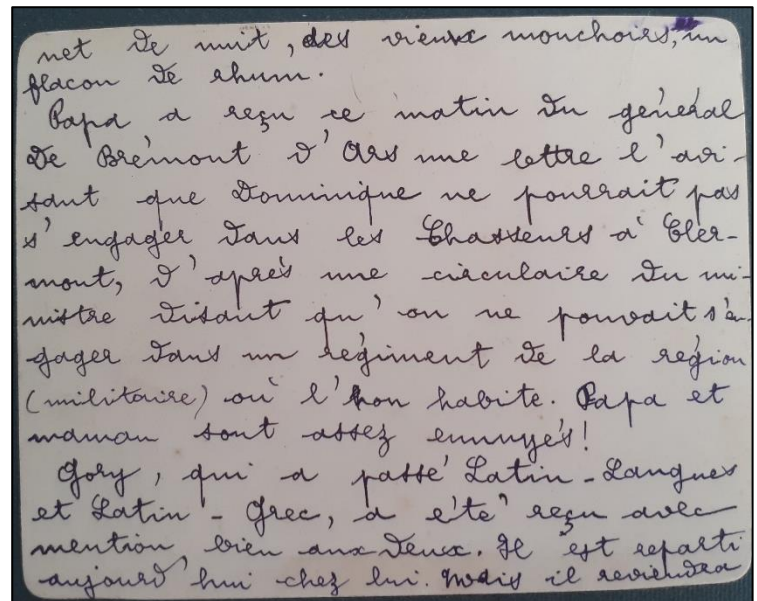 net de nuit, des vieux mouchoirs, un
flacon de rhum.
Papa a reçu ce matin du général
De Brémont d'Ars une lettre l'avi-
sant que Dominique ne pourrait pas
s'engager dans les Chasseurs à Cler-
mont, d'après une circulaire du mi-
nistre disant qu'on ne pouvait s'en-
gager dans un régiment de la région
(militaire) où l'hon habite. Papa et
maman sont assez ennuyés!
Gory, qui a passé Latin-Langues
et Latin-Grec, a été reçu avec
mention bien aux deux. Il est reparti
aujourd'hui chez lui. Mais il reviendra